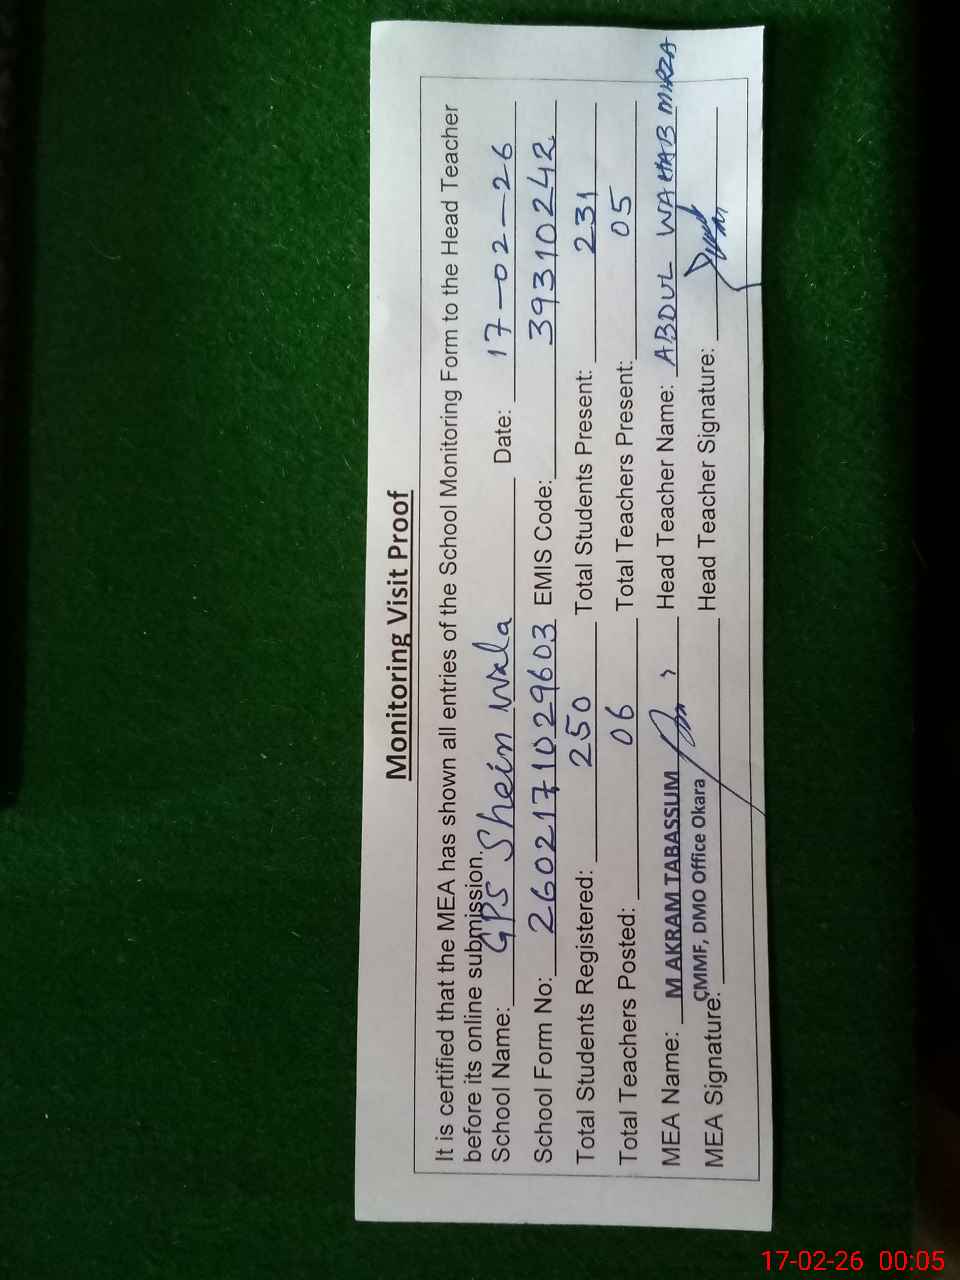 Monitoring Visit Proof
It is certified that the MEA has shown all entries of the School Monitoring Form to the Head Teacher
before its online submission.
School Name: GPS Shein Wala Date: 17-02-26
School Form No: 2602171029603 EMIS Code: 39310242
Total Students Registered: 250 Total Students Present: 231
Total Teachers Posted: 06 Total Teachers Present: 05
MEA Name: M AKRAM TABASSUM Head Teacher Name: ABDUL WAHAB MIRZA
CMMF, DMO Office Okara
MEA Signature: Head Teacher Signature:
17-02-26 00:05